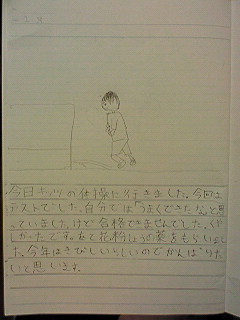 今日キッズの体操に行きました。今回は
テストでした。自分ではうまくできたなと思
っていました。けど合格できませんでした。くや
しかったです。あと花粉しょうの薬をもらいまし
た。今年はきびしいらしいのでがんばりた
いと思います。